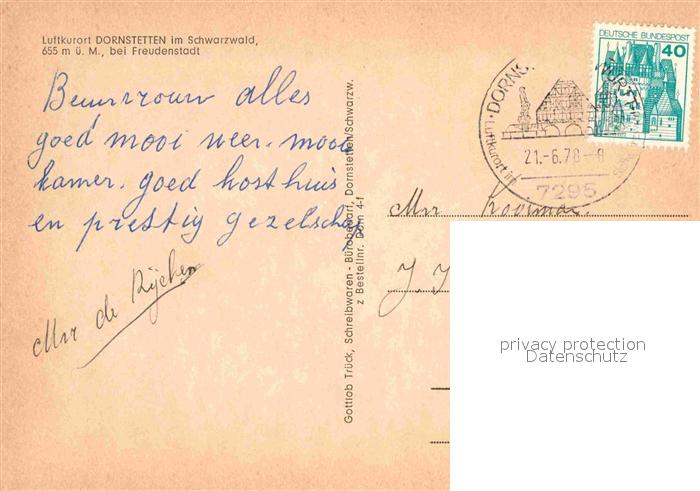 Luftkurort DORNSTETTEN im Schwarzwald,
655 m ü. M., bei Freudenstadt
alles
goed mooi weer. mooi
kamer. goed kosthuis
en prettig gezelschap
Mvr de Rijcken
Gottlob Trück, Schreibwaren - Bürobedarf, Dornstetten/Schwarzw.
z Bestellnr. Dorn 4-f
DEUTSCHE BUNDESPOST
40
Luftkurort im
21.-6.78-
7295
Mvr Kooiman.
privacy protection
Datenschutz